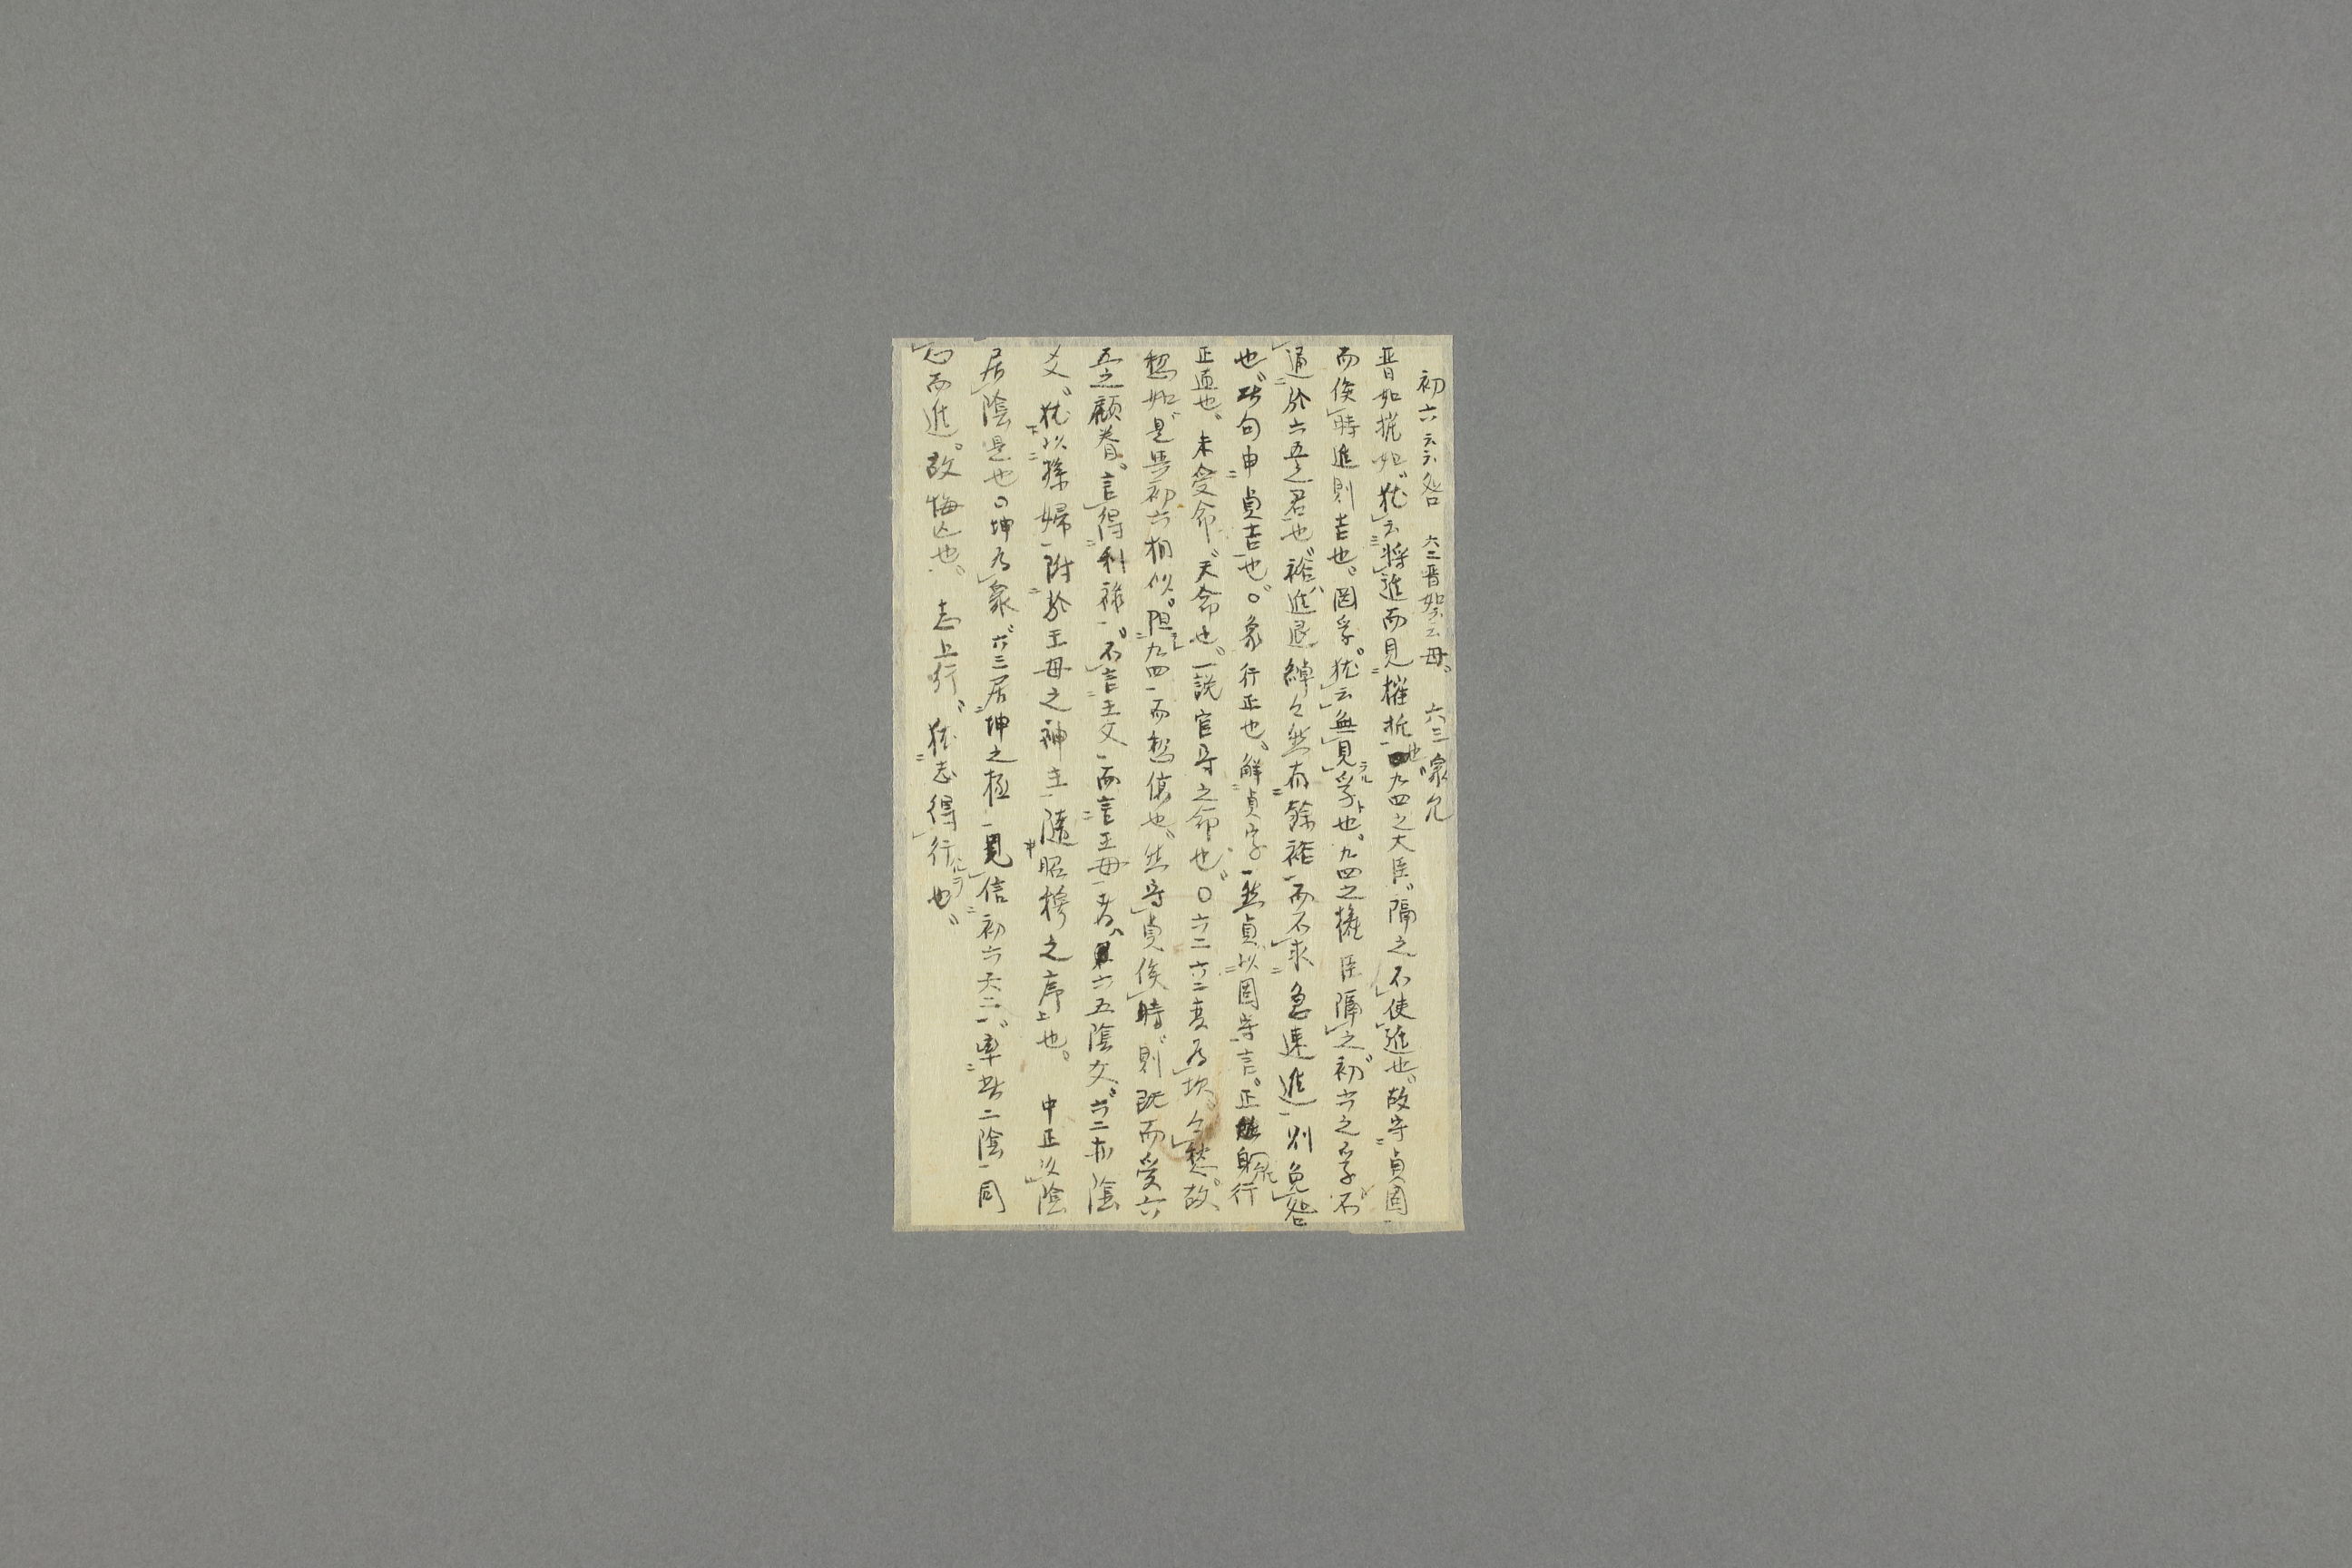 初六云云咎　六二晋如云云母。　六三衆允
晋如摧如、猶云将進而見摧折也。九四之大臣、隔之不使進也。故守貞固
而俟時進則吉也。罔孚。猶云無見孚也。九四之権臣隔之、初六之孚不
通於六五之君也、裕、進退綽々然有餘裕而不求急速進、則免咎
也、此句申貞吉也。○象行正也、解貞字、然貞以固守言。正身行
正道也。未受命、天命也、一説官守之命也、○六二六二変為坎。々愁。故
愁如、是与初六相似。阻九四而愁也、然守貞俟時、則既而受六
五之顧眷、言得利禄。不言王父而言王母者、六五陰爻、六二亦陰
爻、猶以孫婦附於王母之神主随昭穆之序也。　中正以陰
居陰是也○坤為衆、六三居坤之極見信初六六二、率此二陰同
心而進。故悔亡也。　志上行、猶志得行也、